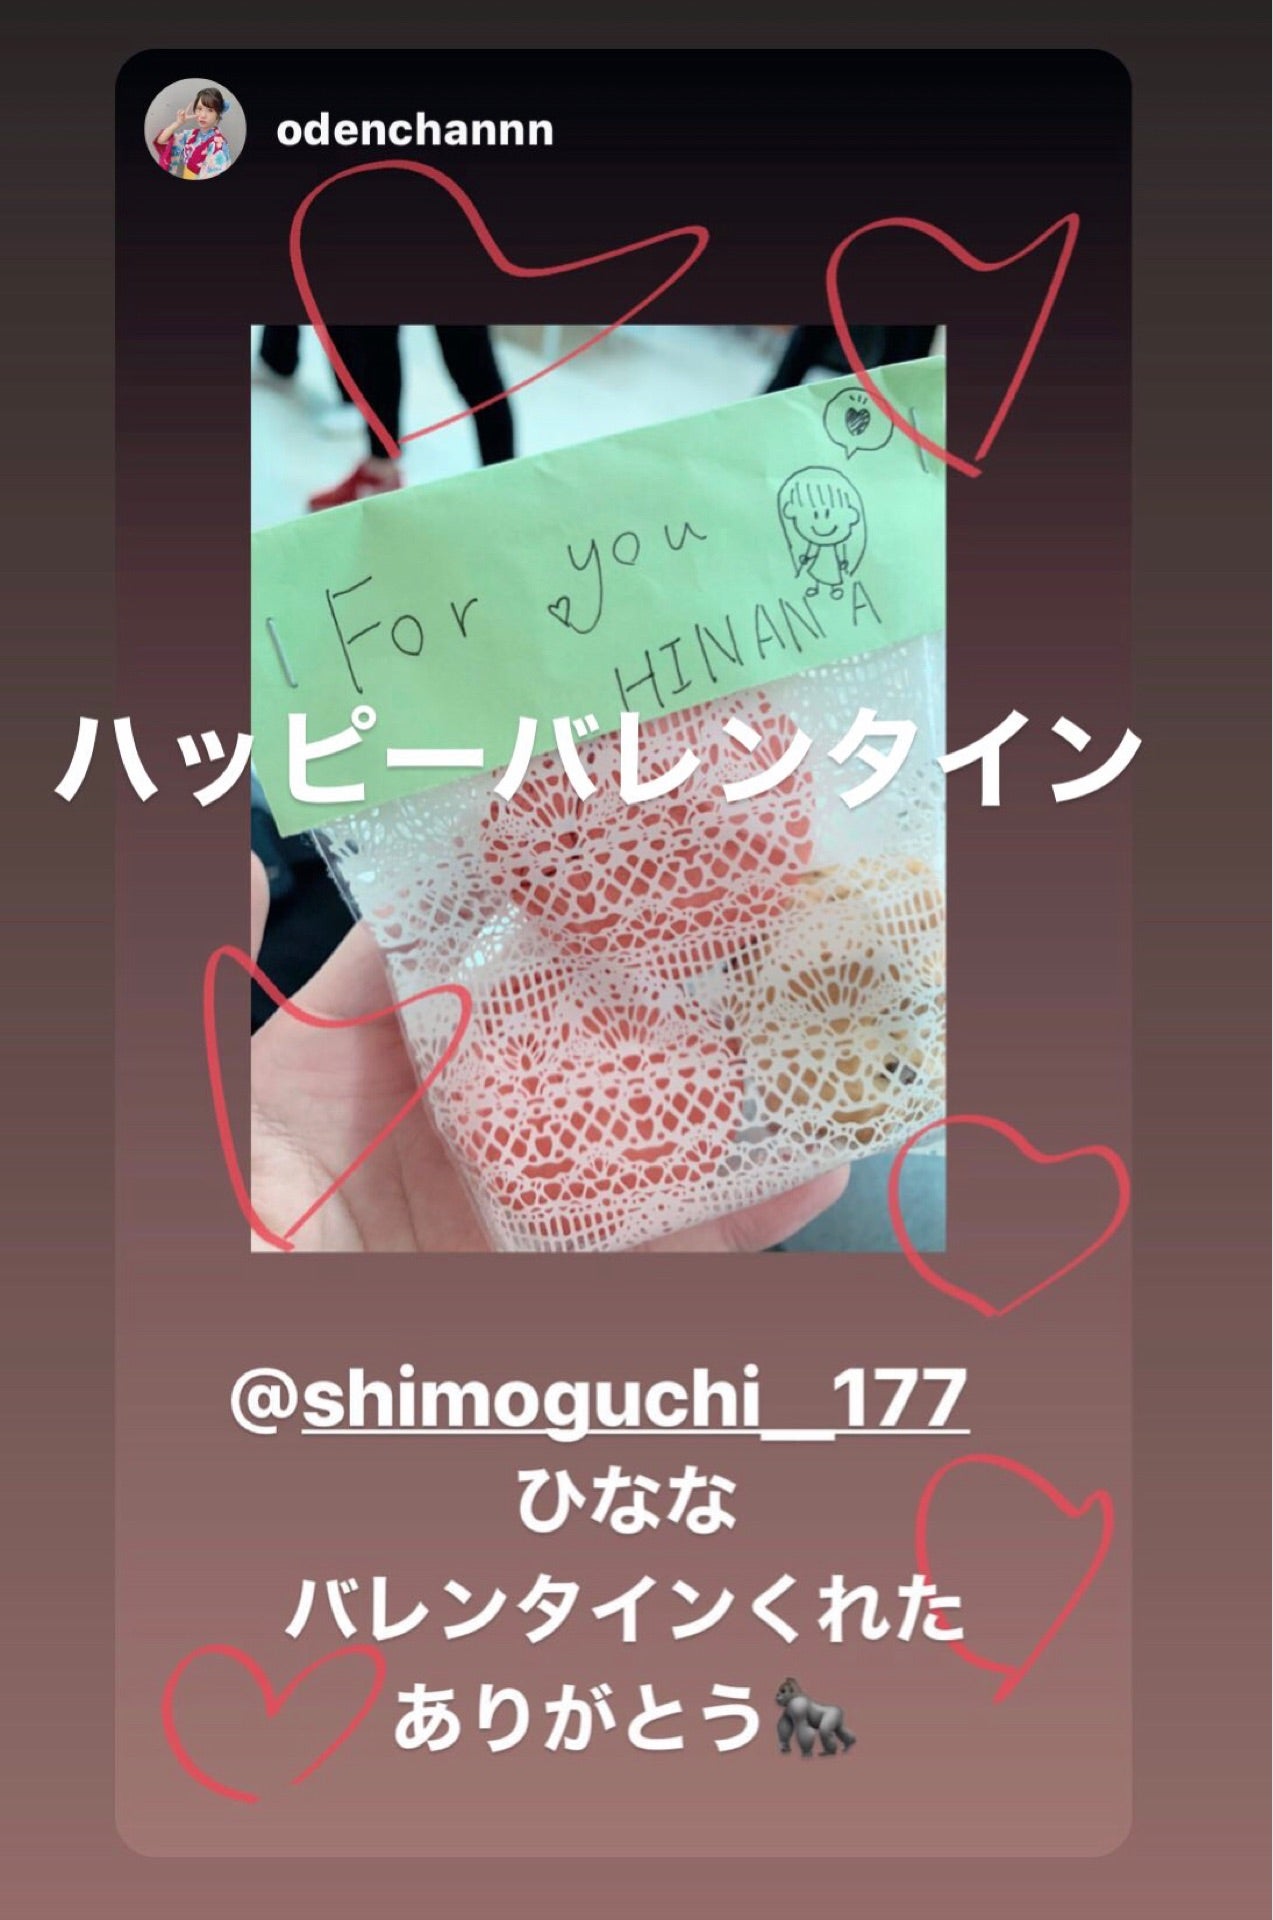 odenchannn
For you
HINANA
ハッピーバレンタイン
@shimoguchi__177
ひなな
バレンタインくれた
ありがとう🦍